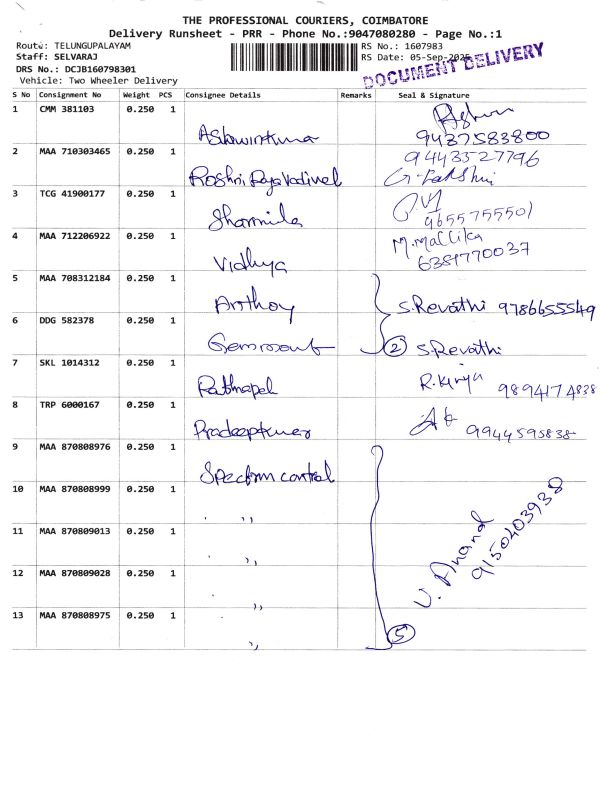 THE PROFESSIONAL COURIERS, COIMBATORE
Delivery Runsheet - PRR - Phone No.:9047080280 - Page No.:1
Route: TELUNGUPALAYAM
RS No.: 1607983
Staff: SELVARAJ
RS Date: 05-Sep-2025
DRS No.: DCJB160798301
Vehicle: Two Wheeler Delivery
DOCUMENT DELIVERY
S No Consignment No Weight PCS Consignee Details Remarks Seal & Signature
1 CMM 381103 0.250 1
Ashwinkumar 9437583800
2 MAA 710303465 0.250 1 9443527796
Roshni Rajavadivel
3 TCG 41900177 0.250 1
Sharmila 9655755501
4 MAA 712206922 0.250 1 M.Mallika
Vidhya 6381770037
5 MAA 708312184 0.250 1
Anthoy S.Revathi 9786655549
6 DDG 582378 0.250 1
② S.Revathi
7 SKL 1014312 0.250 1
R. 9894174838
8 TRP 6000167 0.250 1
Pradeepkumar 9944595838
9 MAA 870808976 0.250 1
Spectrum control
10 MAA 870808999 0.250 1
,,
11 MAA 870809013 0.250 1
,,
V. Anand
9150403938
12 MAA 870809028 0.250 1
,,
13 MAA 870808975 0.250 1
⑤
,,